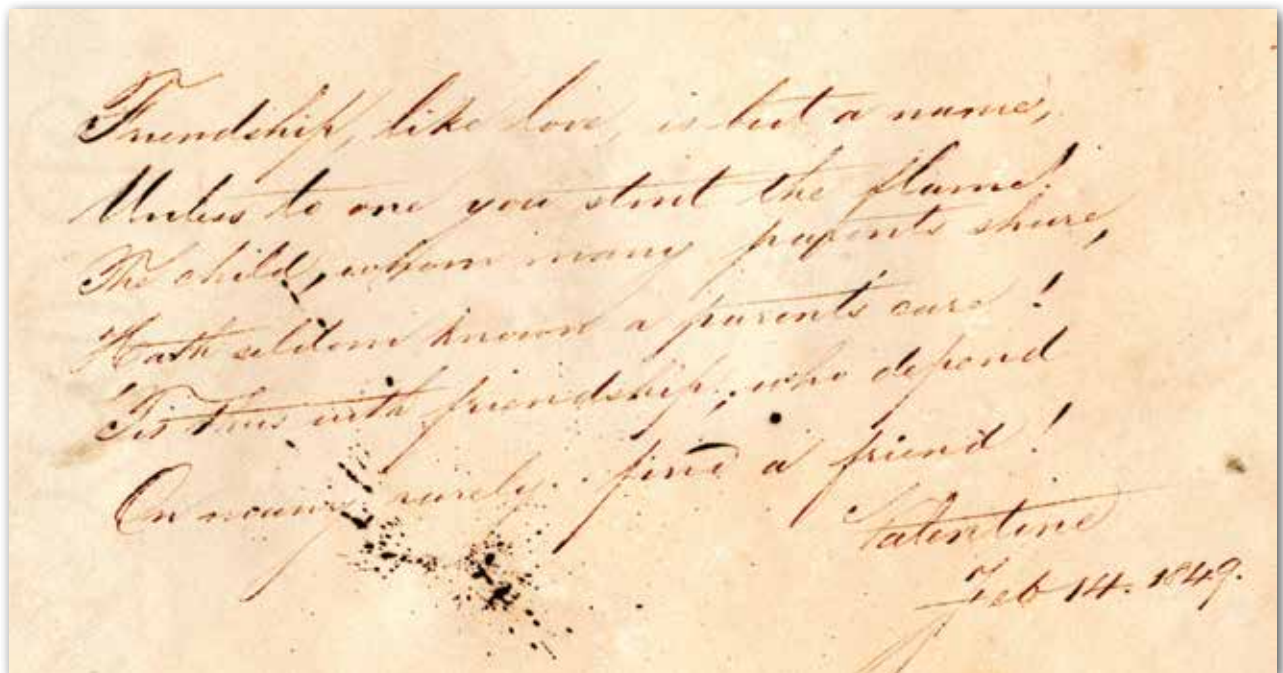 Friendship, like love, is but a name,
Unless to one you stint the flame!
The child, whom many parents share,
Hath seldom known a parent's care!
'Tis thus with friendship, who depend
On many, rarely find a friend!
Valentine
Feb 14. 1849.